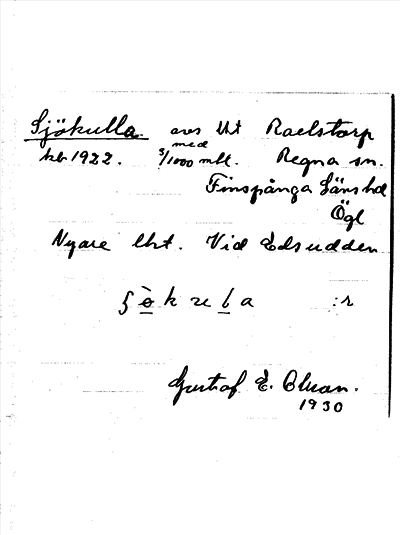 Sjökulla avs Uht Raelstorp
kbr 1922. med 5/1000 mtl. Regna sn.
Finspånga Läns hd
Ögl
Nyare lht. Vid Edsudden
:r
Gustaf E. Olsson.
1930